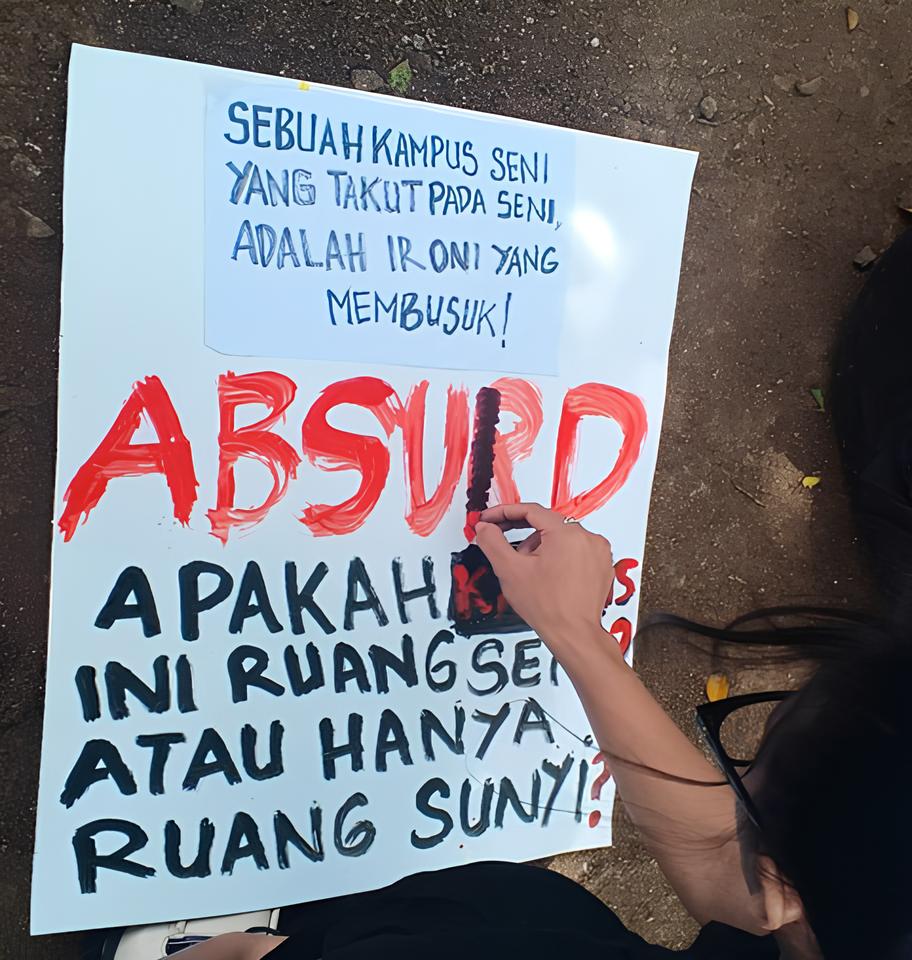 SEBUAH KAMPUS SENI
YANG TAKUT PADA SENI,
ADALAH IRONI YANG
MEMBUSUK!
ABSURD
APAKAH
INI RUANG
ATAU HANYA
RUANG SUNYI?